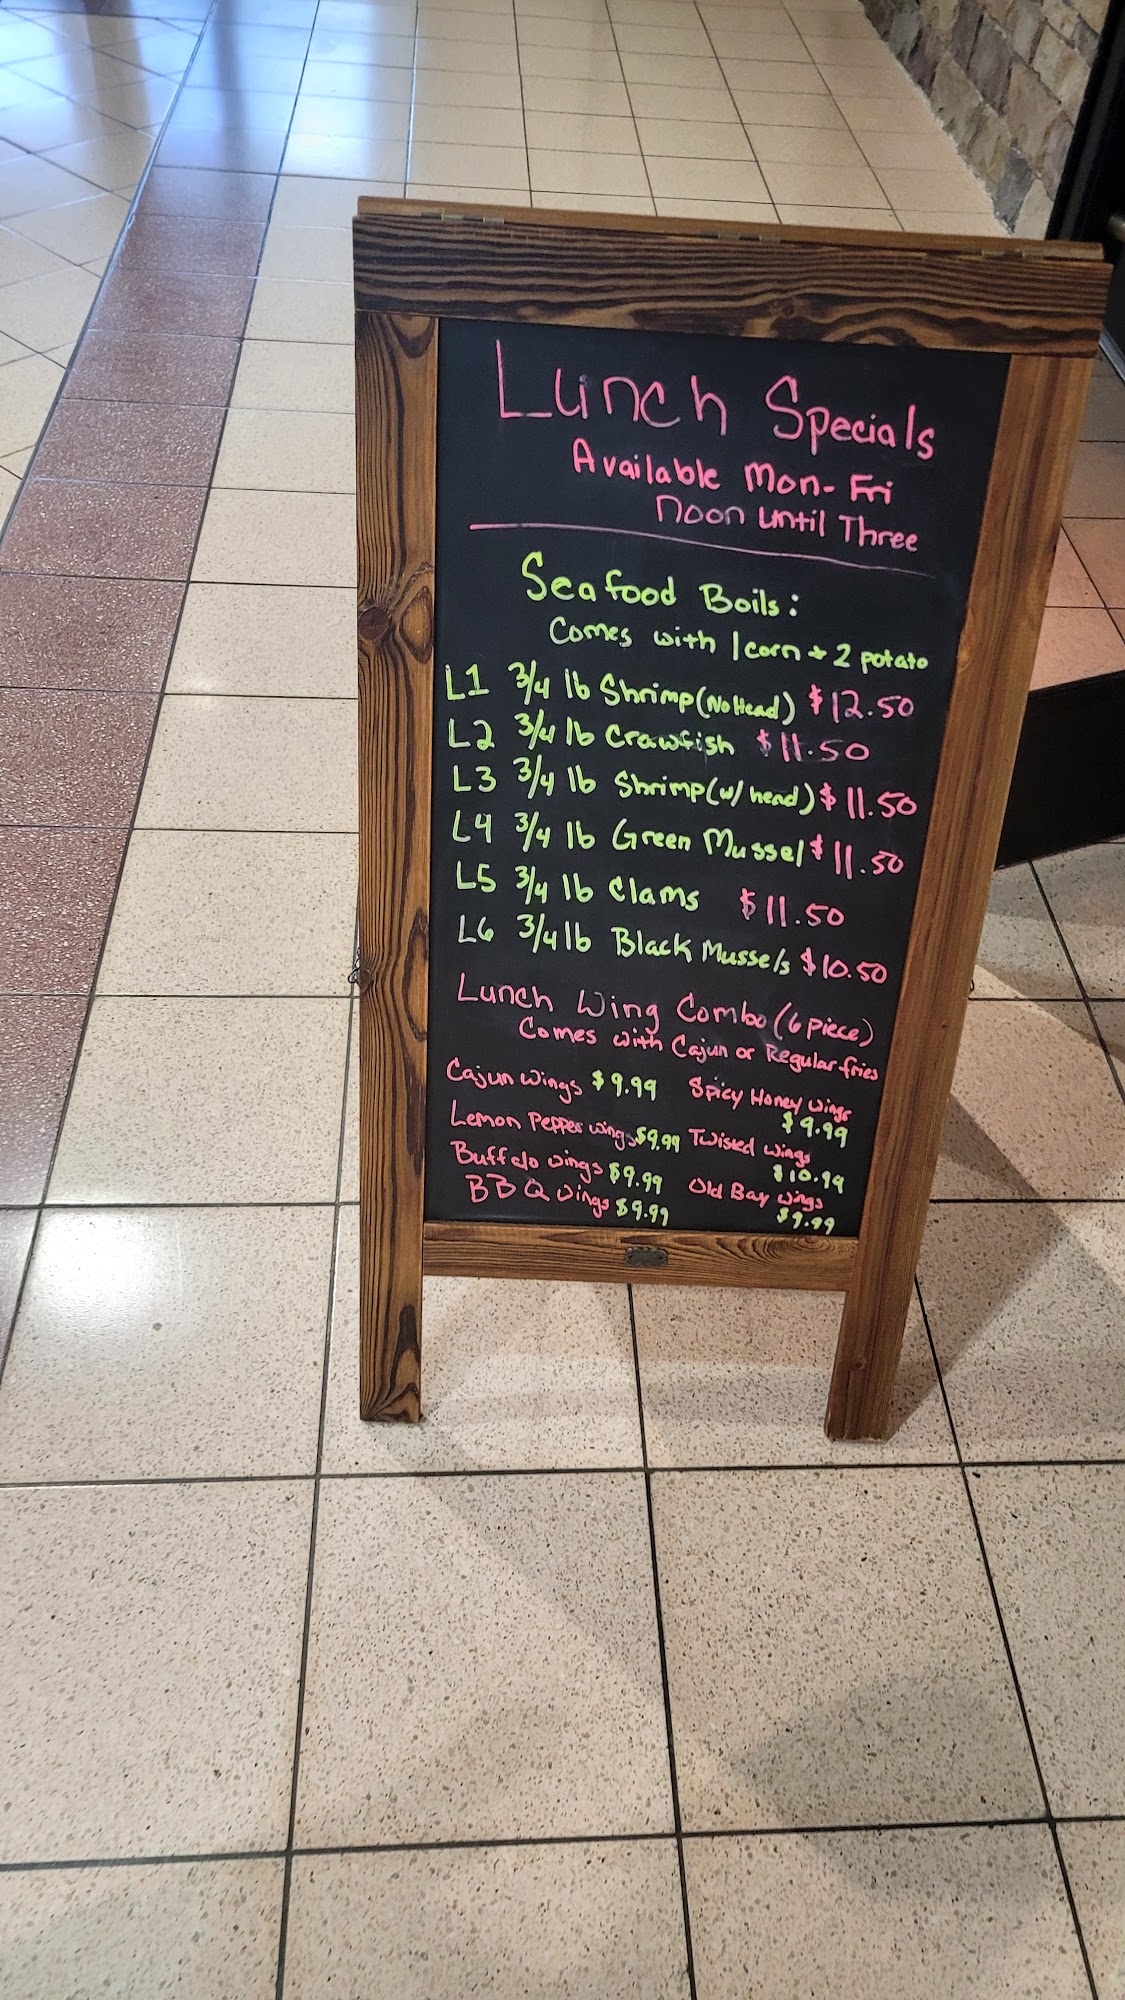 Lunch Specials
Available Mon-Fri
Noon until Three
Seafood Boils:
Comes with 1 corn + 2 potato
L1 3/4 lb Shrimp (No Head) $12.50
L2 3/4 lb Crawfish $11.50
L3 3/4 lb Shrimp (w/ head) $11.50
L4 3/4 lb Green Mussel $11.50
L5 3/4 lb Clams $11.50
L6 3/4 lb Black Mussels $10.50
Lunch Wing Combo (6 piece)
Comes with Cajun or Regular fries
Cajun Wings $9.99
Lemon Pepper wings $9.99
Buffalo wings $9.99
BBQ wings $9.99
Spicy Honey wings
$9.99
Twisted wings
$10.99
Old Bay wings
$9.99